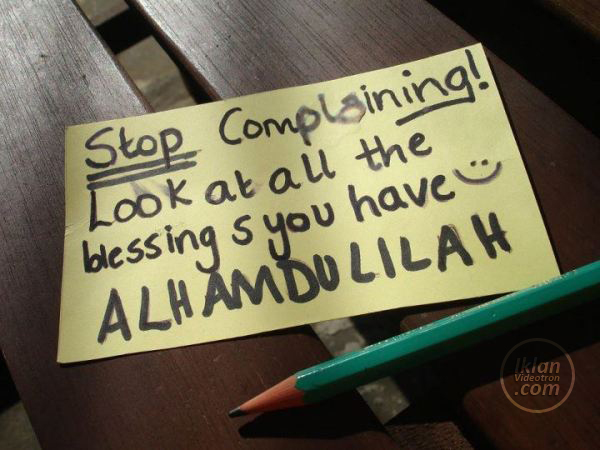 Stop Complaining!
Look at all the
blessings you have
ALHAMDULILAH
Iklan
Videotron
.com